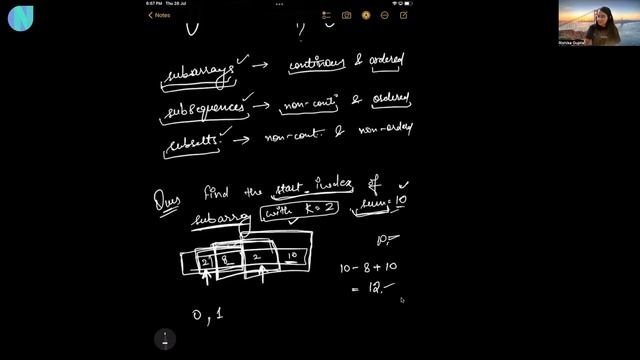 6:57 PM Thu 20 Jul
Nishika Gupta
subarrays → continuous & ordered
subsequences → non-conti & ordered
subsets → non-cont. & non-order
Ques Find the start index of
subarray with K=2 sum=10
10
2 8 2 10
10-8+10
= 12
0, 1